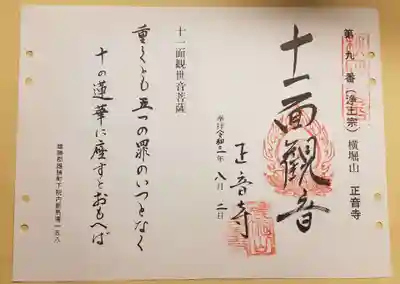 第九番(浄土宗) 横堀山 正音寺
十一面観音
奉拝 令和二年 八月 二日
正音寺
十一面観世音菩薩
重くとも五つの罪のいつとなく
十の蓮華に座すとおもへば